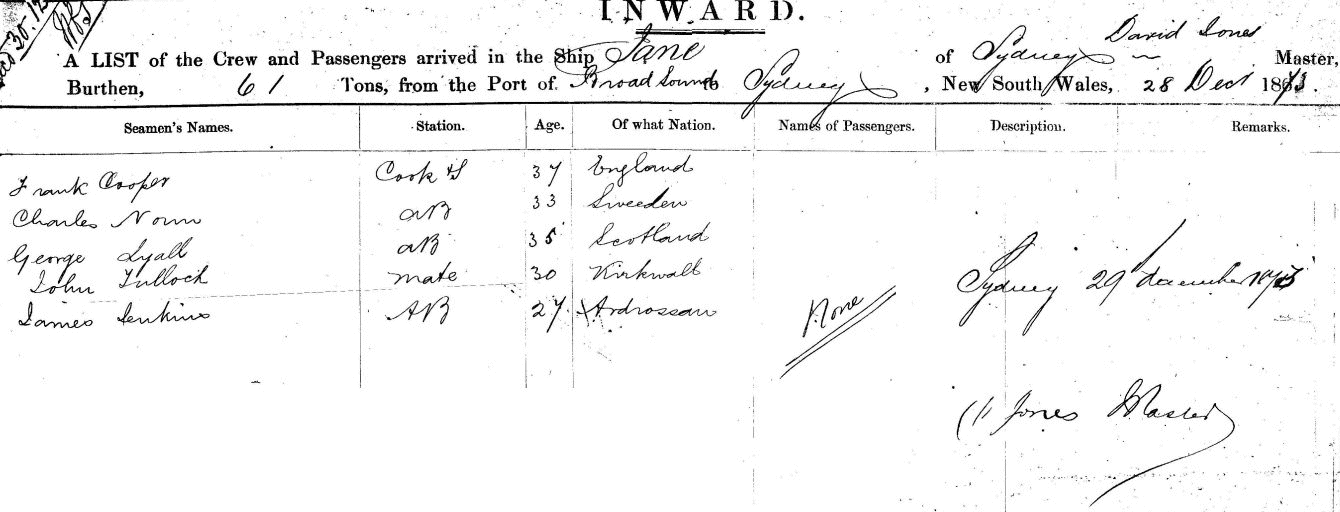 INWARD.
30.12
A LIST of the Crew and Passengers arrived in the Ship Jane of Sydney David Jones Master,
Burthen, 61 Tons, from the Port of Broad Sound to Sydney, New South Wales, 28 Decr 1873.
Seamen's Names. Station. Age. Of what Nation. Names of Passengers. Description. Remarks.
Frank Cooper Cook & S 37 England
Charles AB 33 Sweeden
George Lyall AB 35 Scotland
John Tulloch mate 30 Kirkwall
James Jenkins AB 27 Ardrossan
None
Sydney 29 december 1873
Jones Master